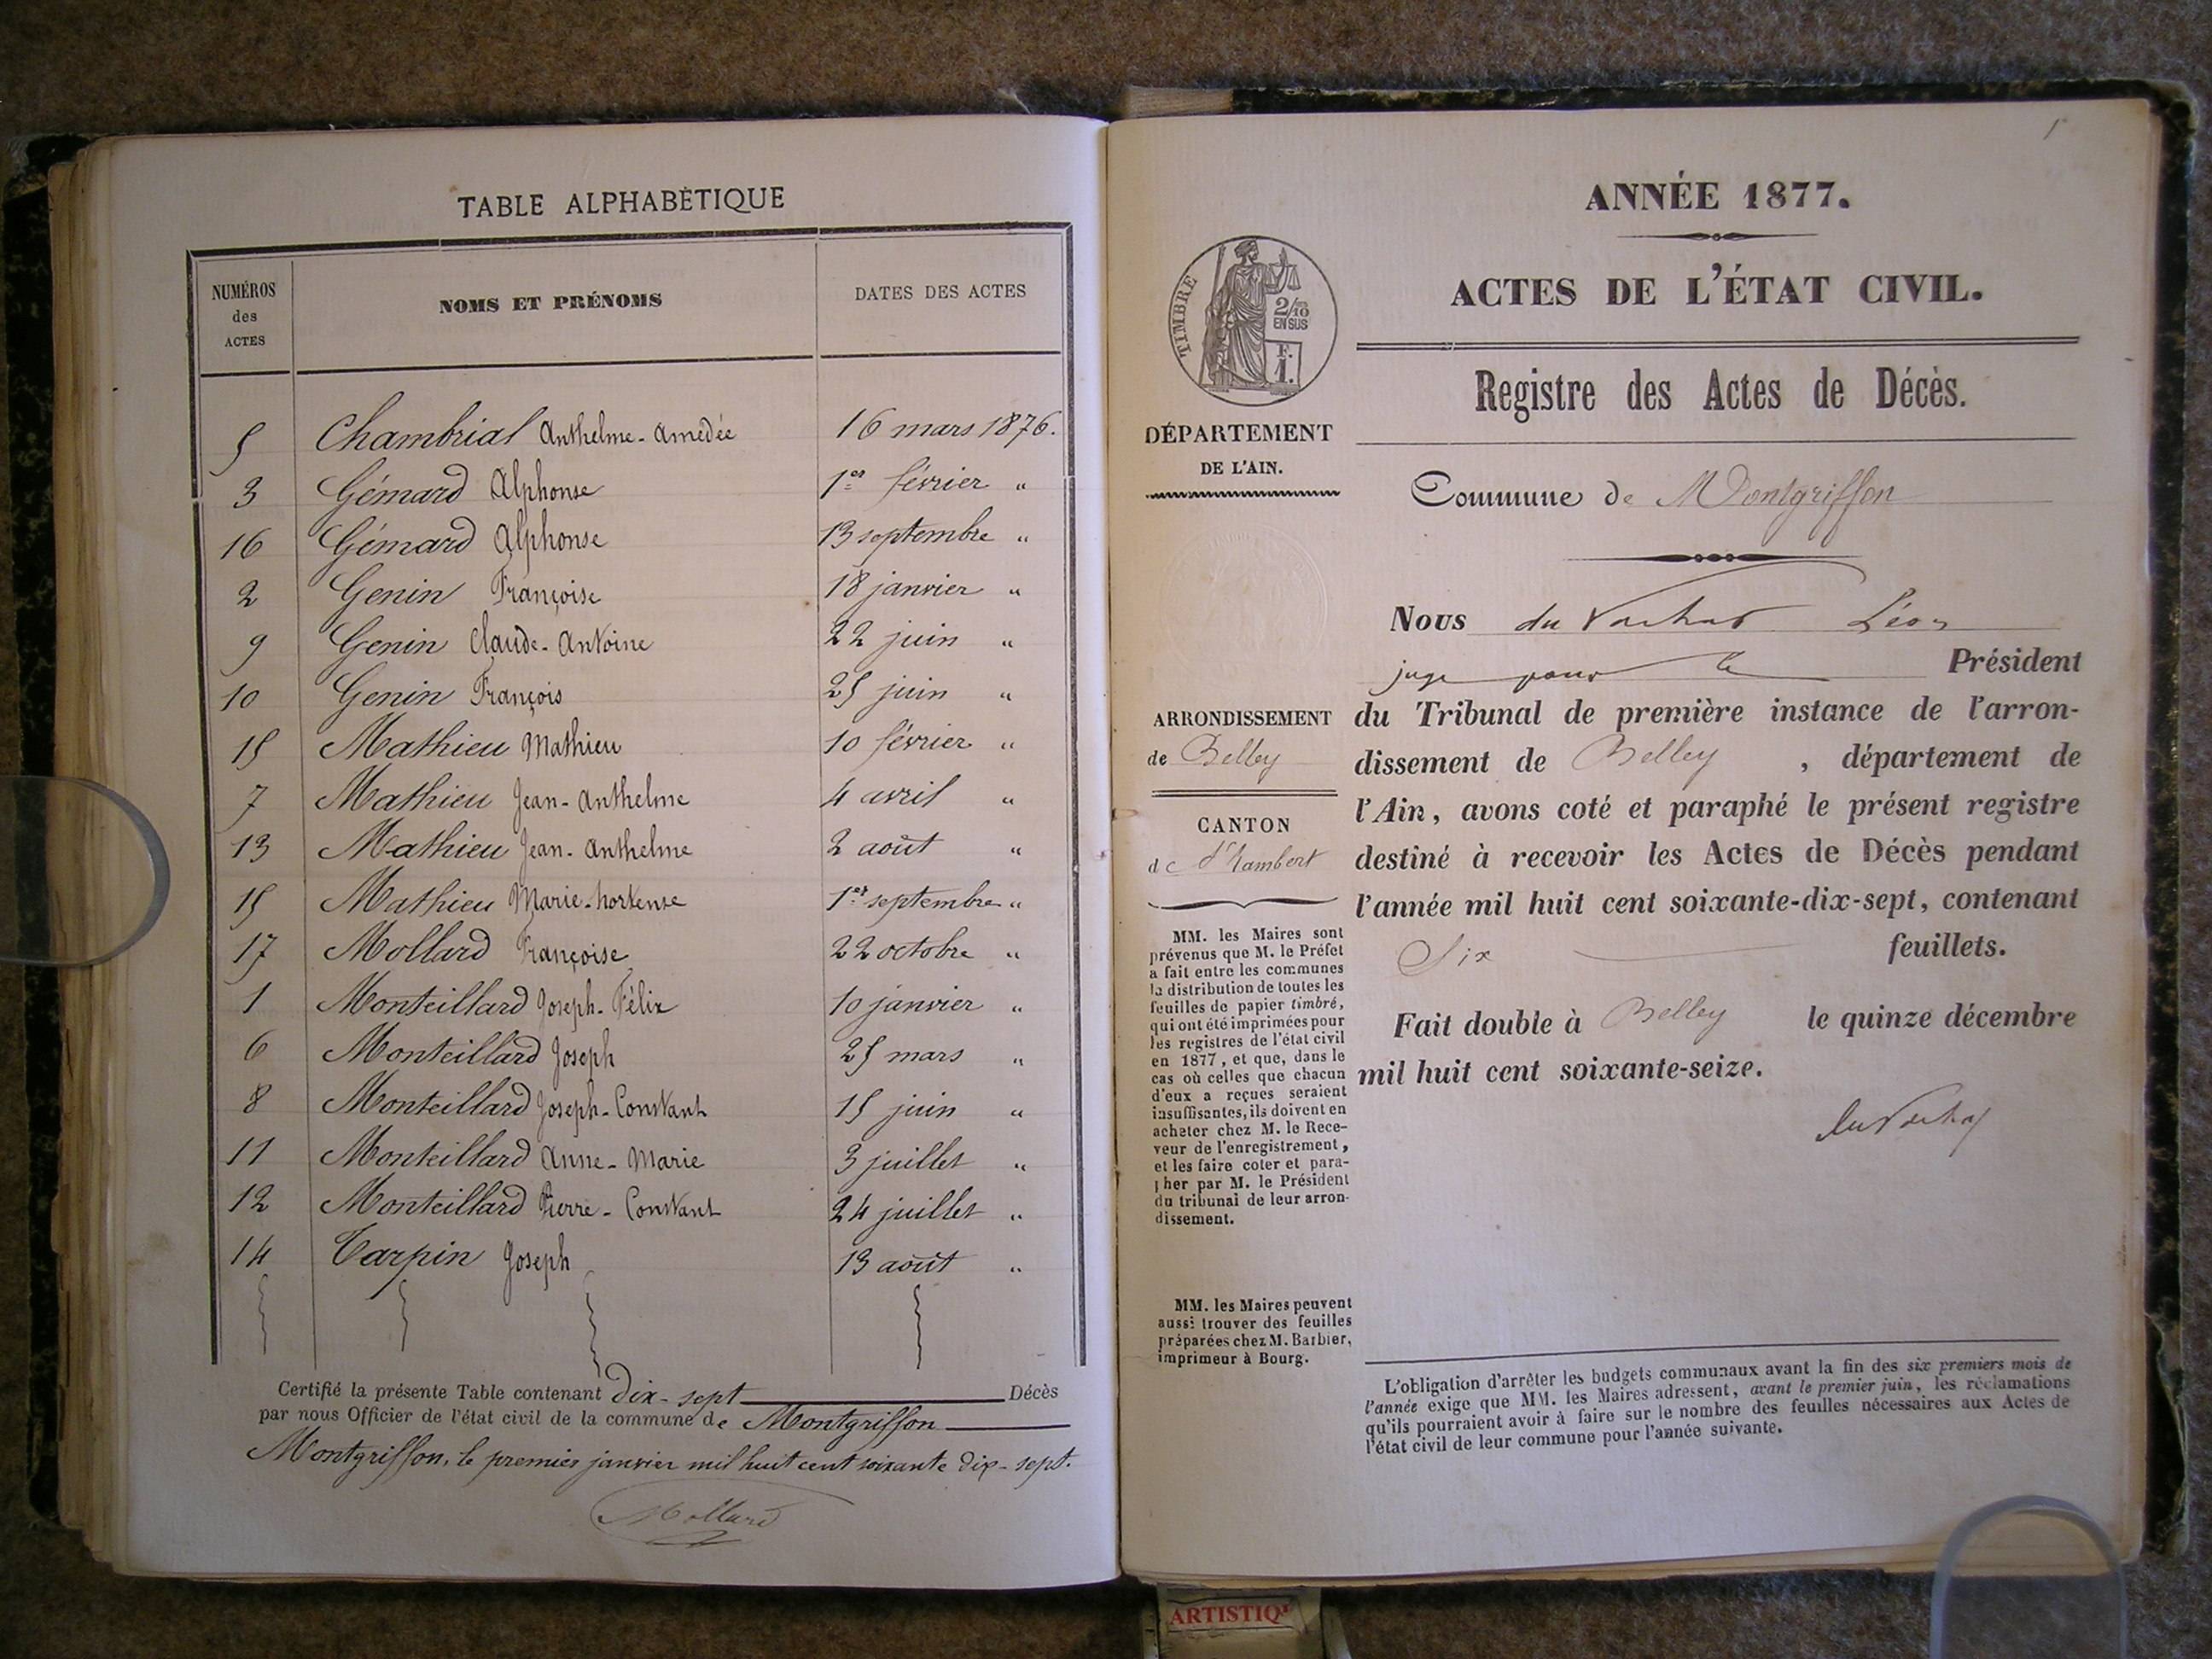 TABLE ALPHABÉTIQUE
NUMÉROS des ACTES NOMS ET PRÉNOMS DATES DES ACTES
5 Chambrial Anthelme-Amedée 16 mars 1876.
3 Gémard Alphonse 1er février "
16 Gémard Alphonse 13 septembre "
2 Genin Françoise 18 janvier "
9 Genin Claude-Antoine 22 juin "
10 Genin François 25 juin "
15 Mathieu Mathieu 10 février "
7 Mathieu Jean-Anthelme 4 avril "
13 Mathieu Jean-Anthelme 2 août "
15 Mathieu Marie-hortense 1er septembre "
17 Mollard Françoise 22 octobre "
1 Monteillard Joseph-Félix 10 janvier "
6 Monteillard Joseph 25 mars "
8 Monteillard Joseph-Constant 15 juin "
11 Monteillard Anne-Marie 3 juillet "
12 Monteillard Pierre-Constant 24 juillet "
14 Tarpin Joseph 13 août "
Certifié la présente Table contenant dix-sept Décès
par nous Officier de l'état civil de la commune de Montgriffon
Montgriffon, le premier janvier mil huit cent soixante dix-sept.
Mollard
1
ANNÉE 1877.
ACTES DE L'ÉTAT CIVIL.
Registre des Actes de Décès.
Commune de Montgriffon
Nous du Léon
juge pour le Président
du Tribunal de première instance de l'arron-
dissement de Belley, département de
l'Ain, avons coté et paraphé le présent registre
destiné à recevoir les Actes de Décès pendant
l'année mil huit cent soixante-dix-sept, contenant
Six feuillets.
Fait double à Belley le quinze décembre
mil huit cent soixante-seize.
TIMBRE
2/10
EN SUS
F.
1.
DÉPARTEMENT
DE L'AIN.
ARRONDISSEMENT
de Belley
CANTON
de St Rambert
MM. les Maires sont
prévenus que M. le Préfet
a fait entre les communes
la distribution de toutes les
feuilles de papier timbré,
qui ont été imprimées pour
les registres de l'état civil
en 1877, et que, dans le
cas où celles que chacun
d'eux a reçues seraient
insuffisantes, ils doivent en
acheter chez M. le Rece-
veur de l'enregistrement,
et les faire coter et para-
pher par M. le Président
du tribunal de leur arron-
dissement.
MM. les Maires peuvent
aussi trouver des feuilles
préparées chez M. Barbier,
imprimeur à Bourg.
L'obligation d'arrêter les budgets communaux avant la fin des six premiers mois de
l'année exige que MM. les Maires adressent, avant le premier juin, les réclamations
qu'ils pourraient avoir à faire sur le nombre des feuilles nécessaires aux Actes de
l'état civil de leur commune pour l'année suivante.
ARTISTIQ